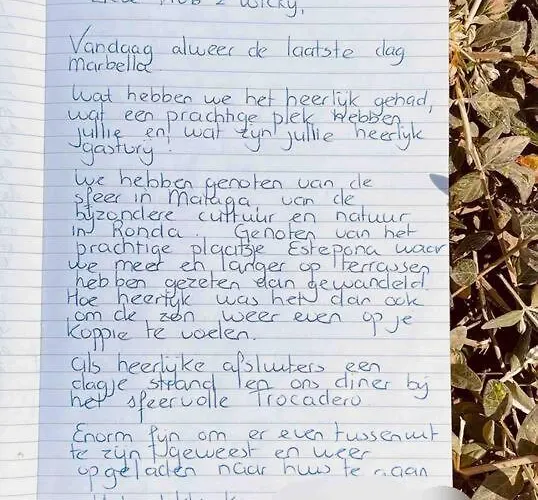 Wicky,
Vandaag alweer de laatste dag
Marbella.
Wat hebben we het heerlijk gehad,
wat een prachtige plek hebben
jullie en wat zijn jullie heerlijk
gastvrij!
We hebben genoten van de
sfeer in Malaga, van de
bijzondere cultuur en natuur
in Ronda. Genoten van het
prachtige plaatsje Estepona waar
we meer en langer op terrassen
hebben gezeten dan gewandeld.
Hoe heerlijk was het dan ook
om de zon weer even op je
koppie te voelen.
Als heerlijke afsluiters een
dagje strand en ons diner bij
het sfeervolle Trocadero
Enorm fijn om er even tussenuit
te zijn geweest en weer
opgeladen naar huis te gaan